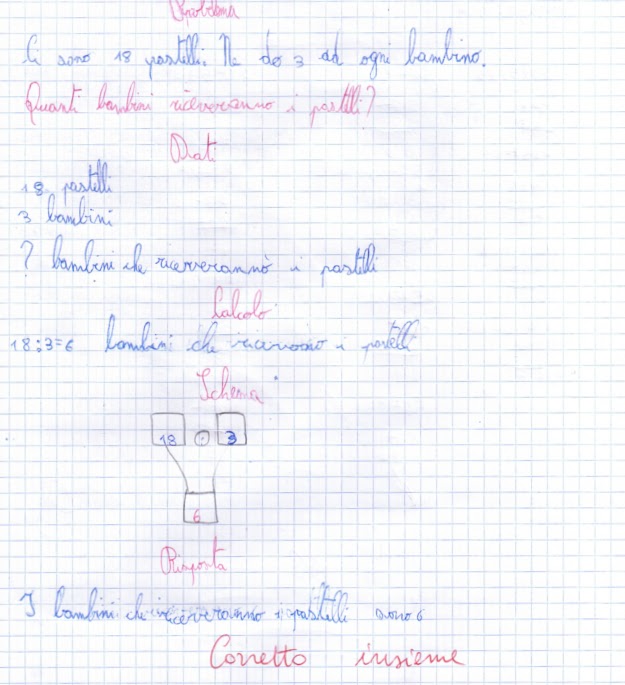 Problema
Ci sono 18 pastelli. Ne do 3 ad ogni bambino.
Quanti bambini riceveranno i pastelli?
Dati
18 pastelli
3 bambini
? bambini che riceveranno i pastelli
Calcolo
18:3=6 bambini che ricevono i pastelli
Schema
18 : 3
6
Risposta
I bambini che riceveranno i pastelli sono 6
Corretto insieme